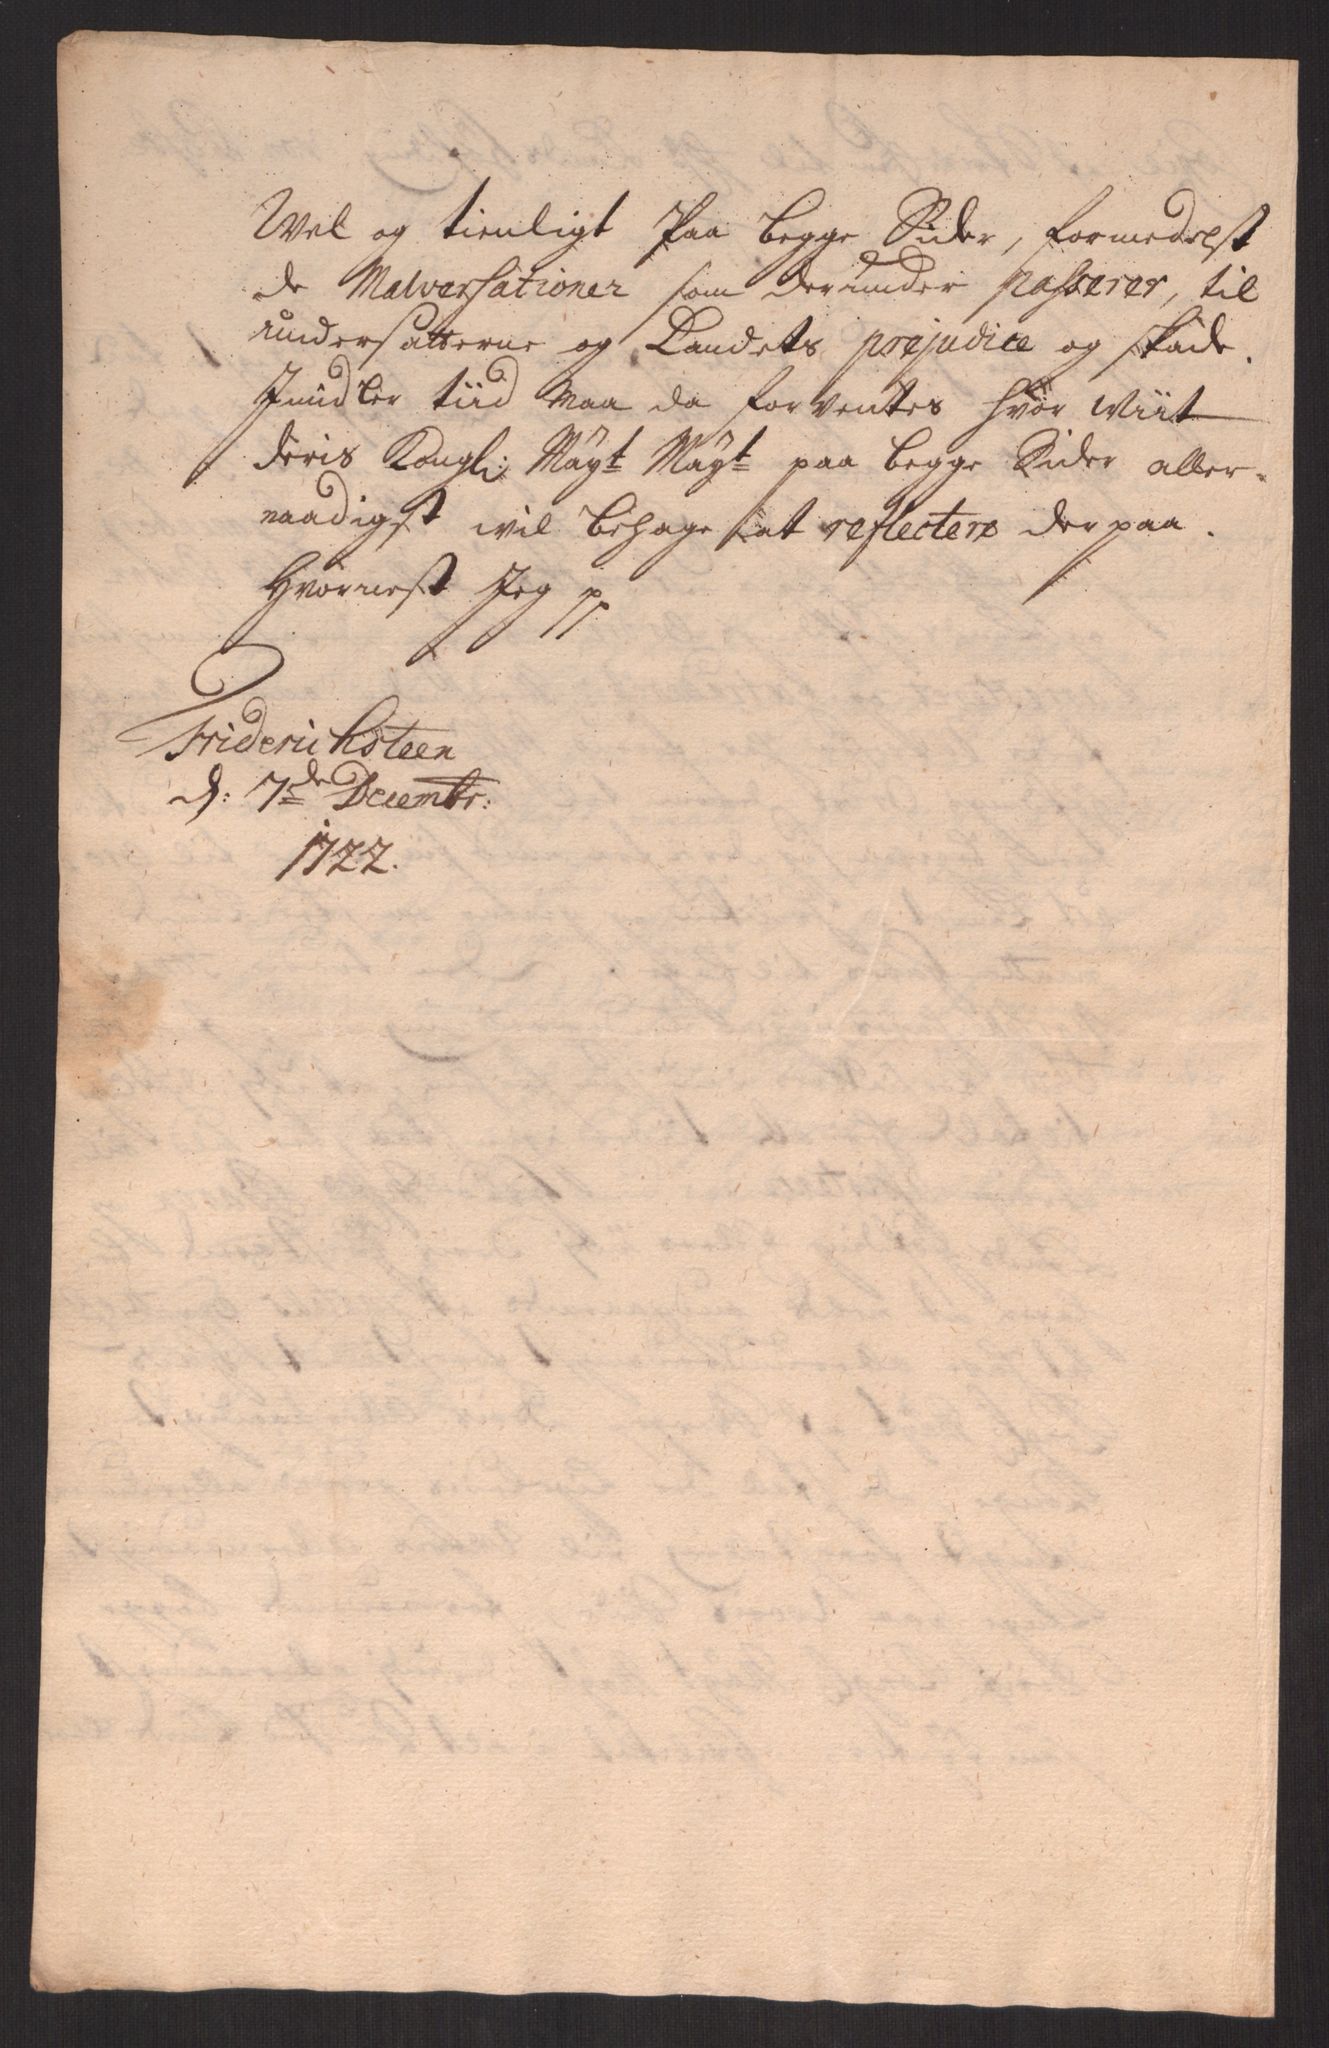 Wel og tienligt Paa begge Sider, formedelst
de Malversationer som derunder passerer, til
undersatterne og Landets prejudice og skade.
Imidler tiid maa da forventes hvor wiit
deris Kongli: Mayt Mayt paa begge Sider aller-
naadigst wil behage at reflectere der paa.
Hvornest Jeg pp
Friderichsteen
d: 7de Decembr:
1722.